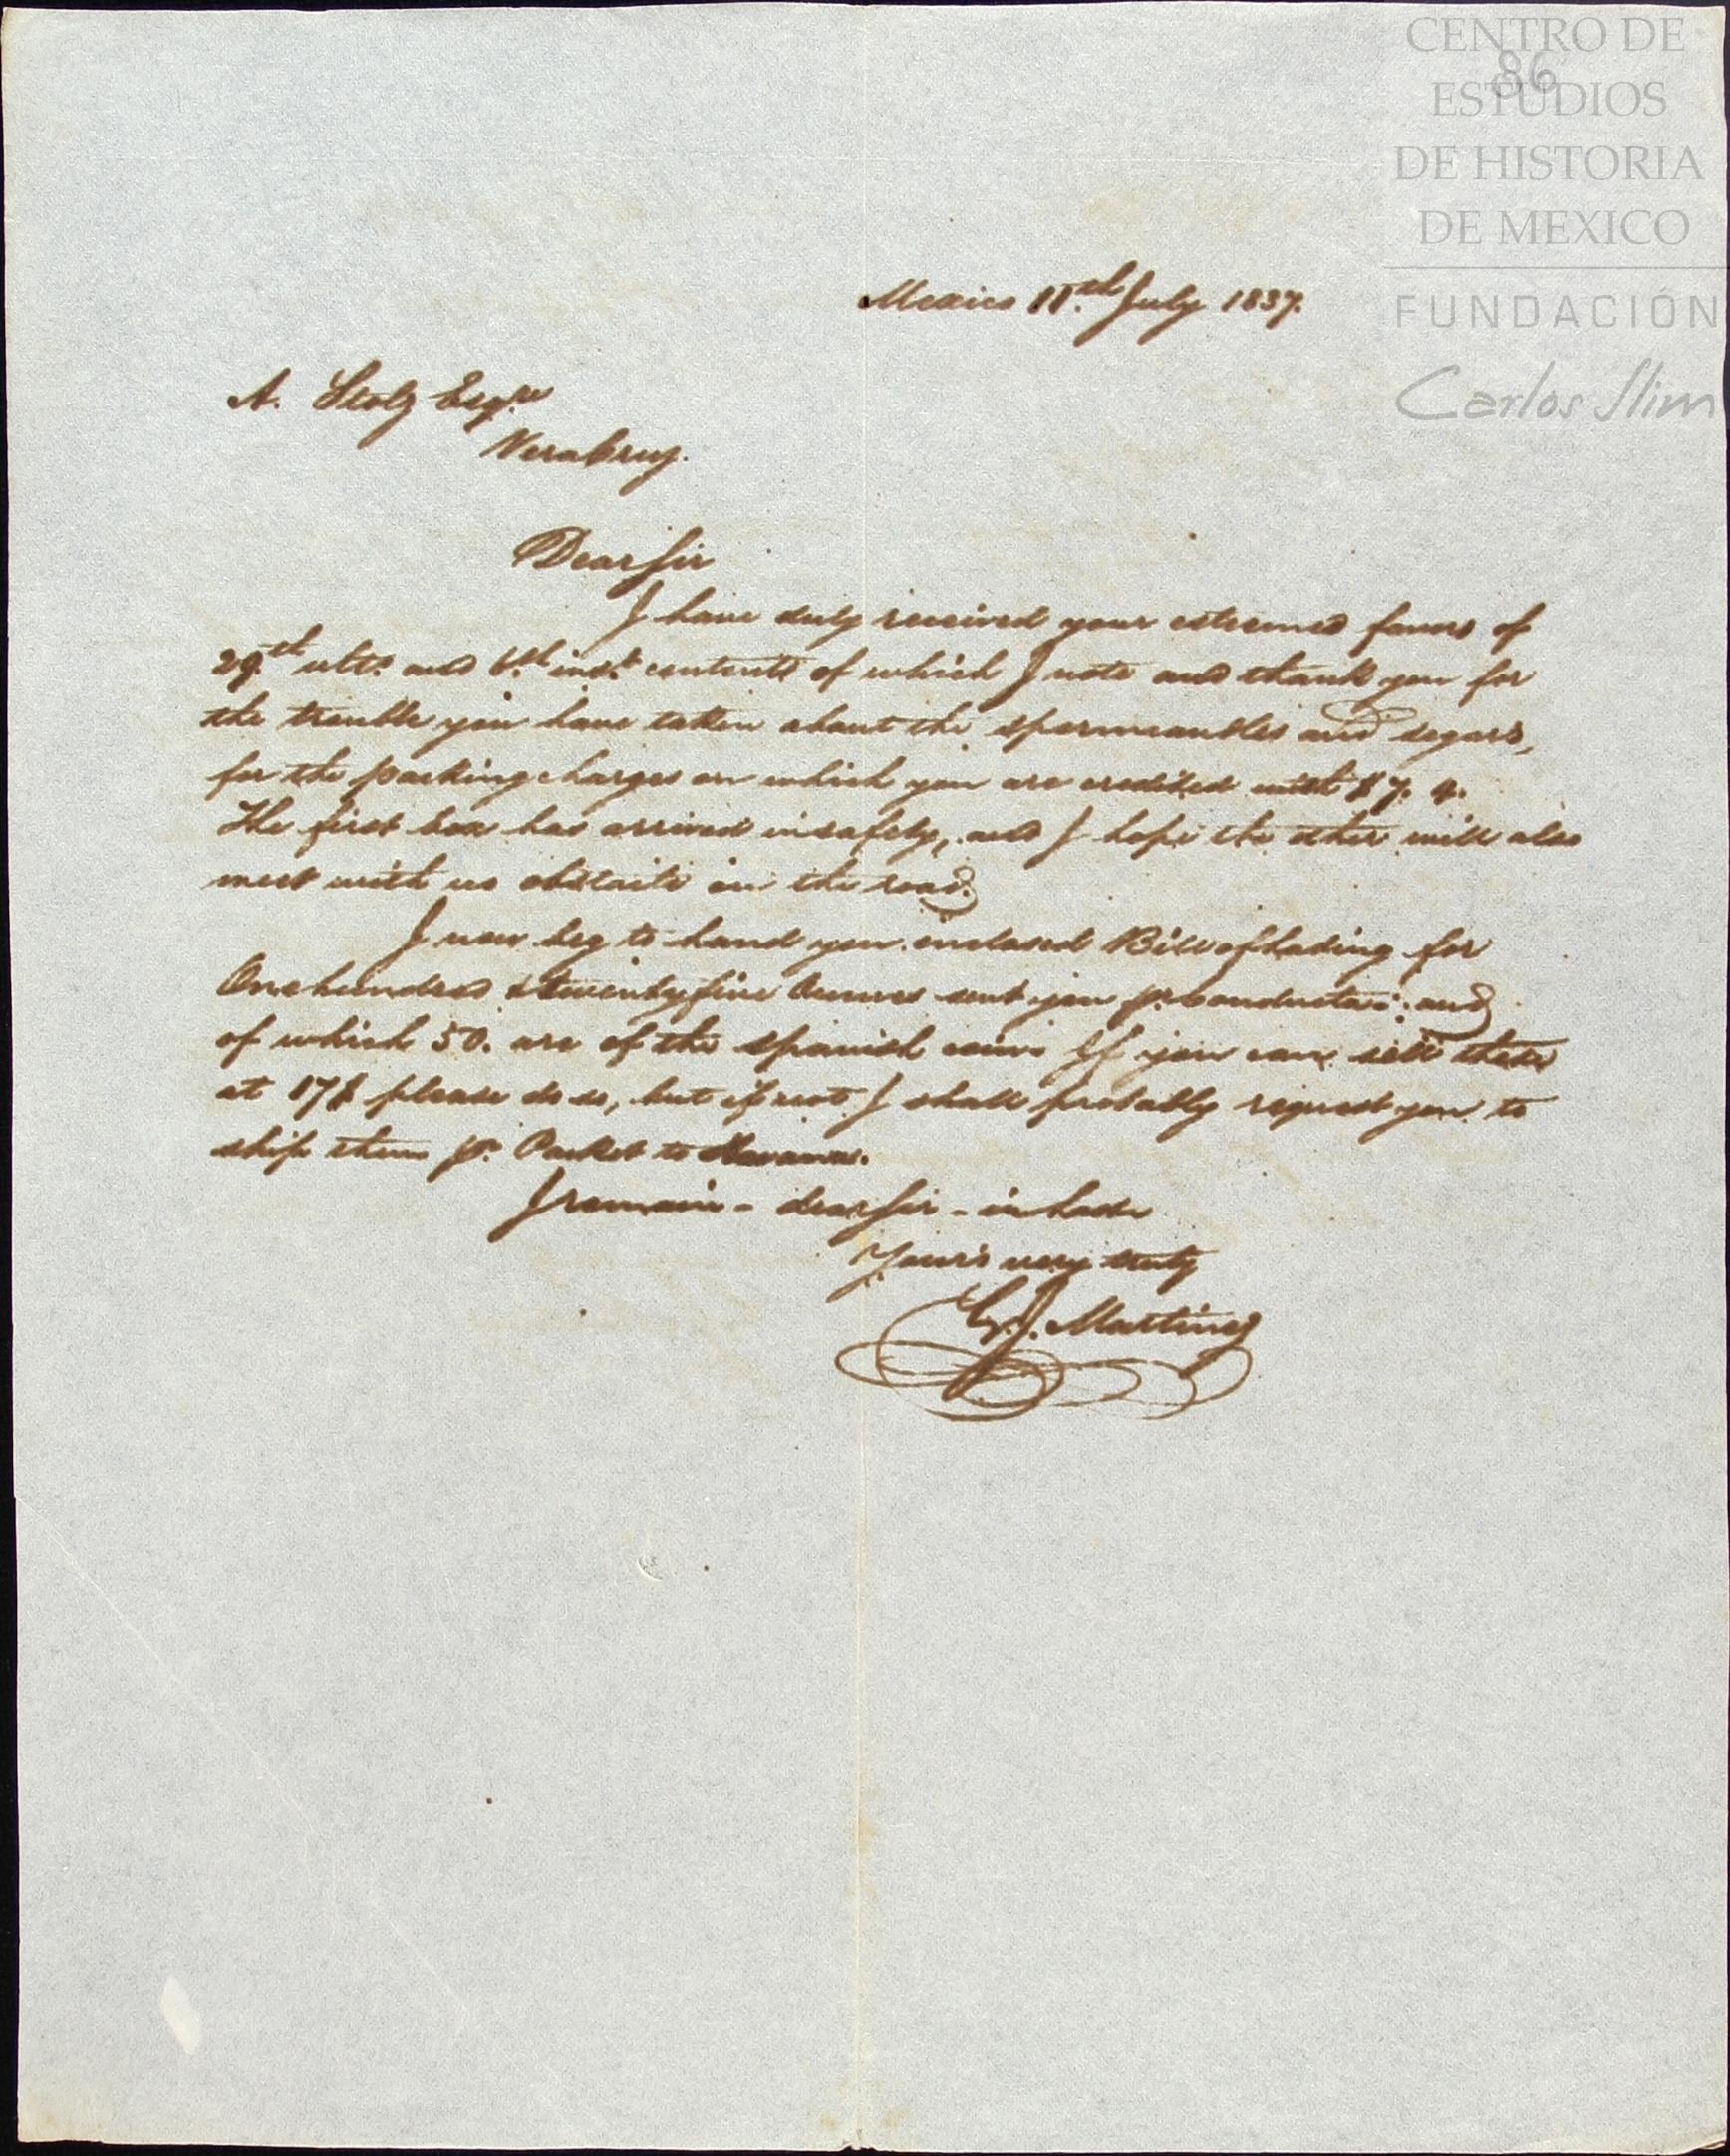 CENTRO DE
ESTUDIOS
DE HISTORIA
DE MEXICO
FUNDACIÓN
Carlos Slim
86
Mexico 11.th July 1837.
A. Stolz Esqre
VeraCruz.
Dear Sir
I have duly received your esteemed favors of
29.th ulto. and 6.th inst. contents of which I note and thank you for
the trouble you have taken about the spermcandles and segars,
for the packing charges on which you are credited with $7. 4.
The first box has arrived in safety, and I hope the other will also
meet with no obstacle on the road.
I now beg to hand you enclosed Bill of Lading for
One hundred & twenty five Ounces sent you pr. Conducta: and
of which 50. are of the Spanish coin. If you can sell these
at 17$ please do so, but if not I shall probably request you to
ship them pr. Packet to Havana.
I remain - dear Sir - in haste
Your's very truly
J. Martinez